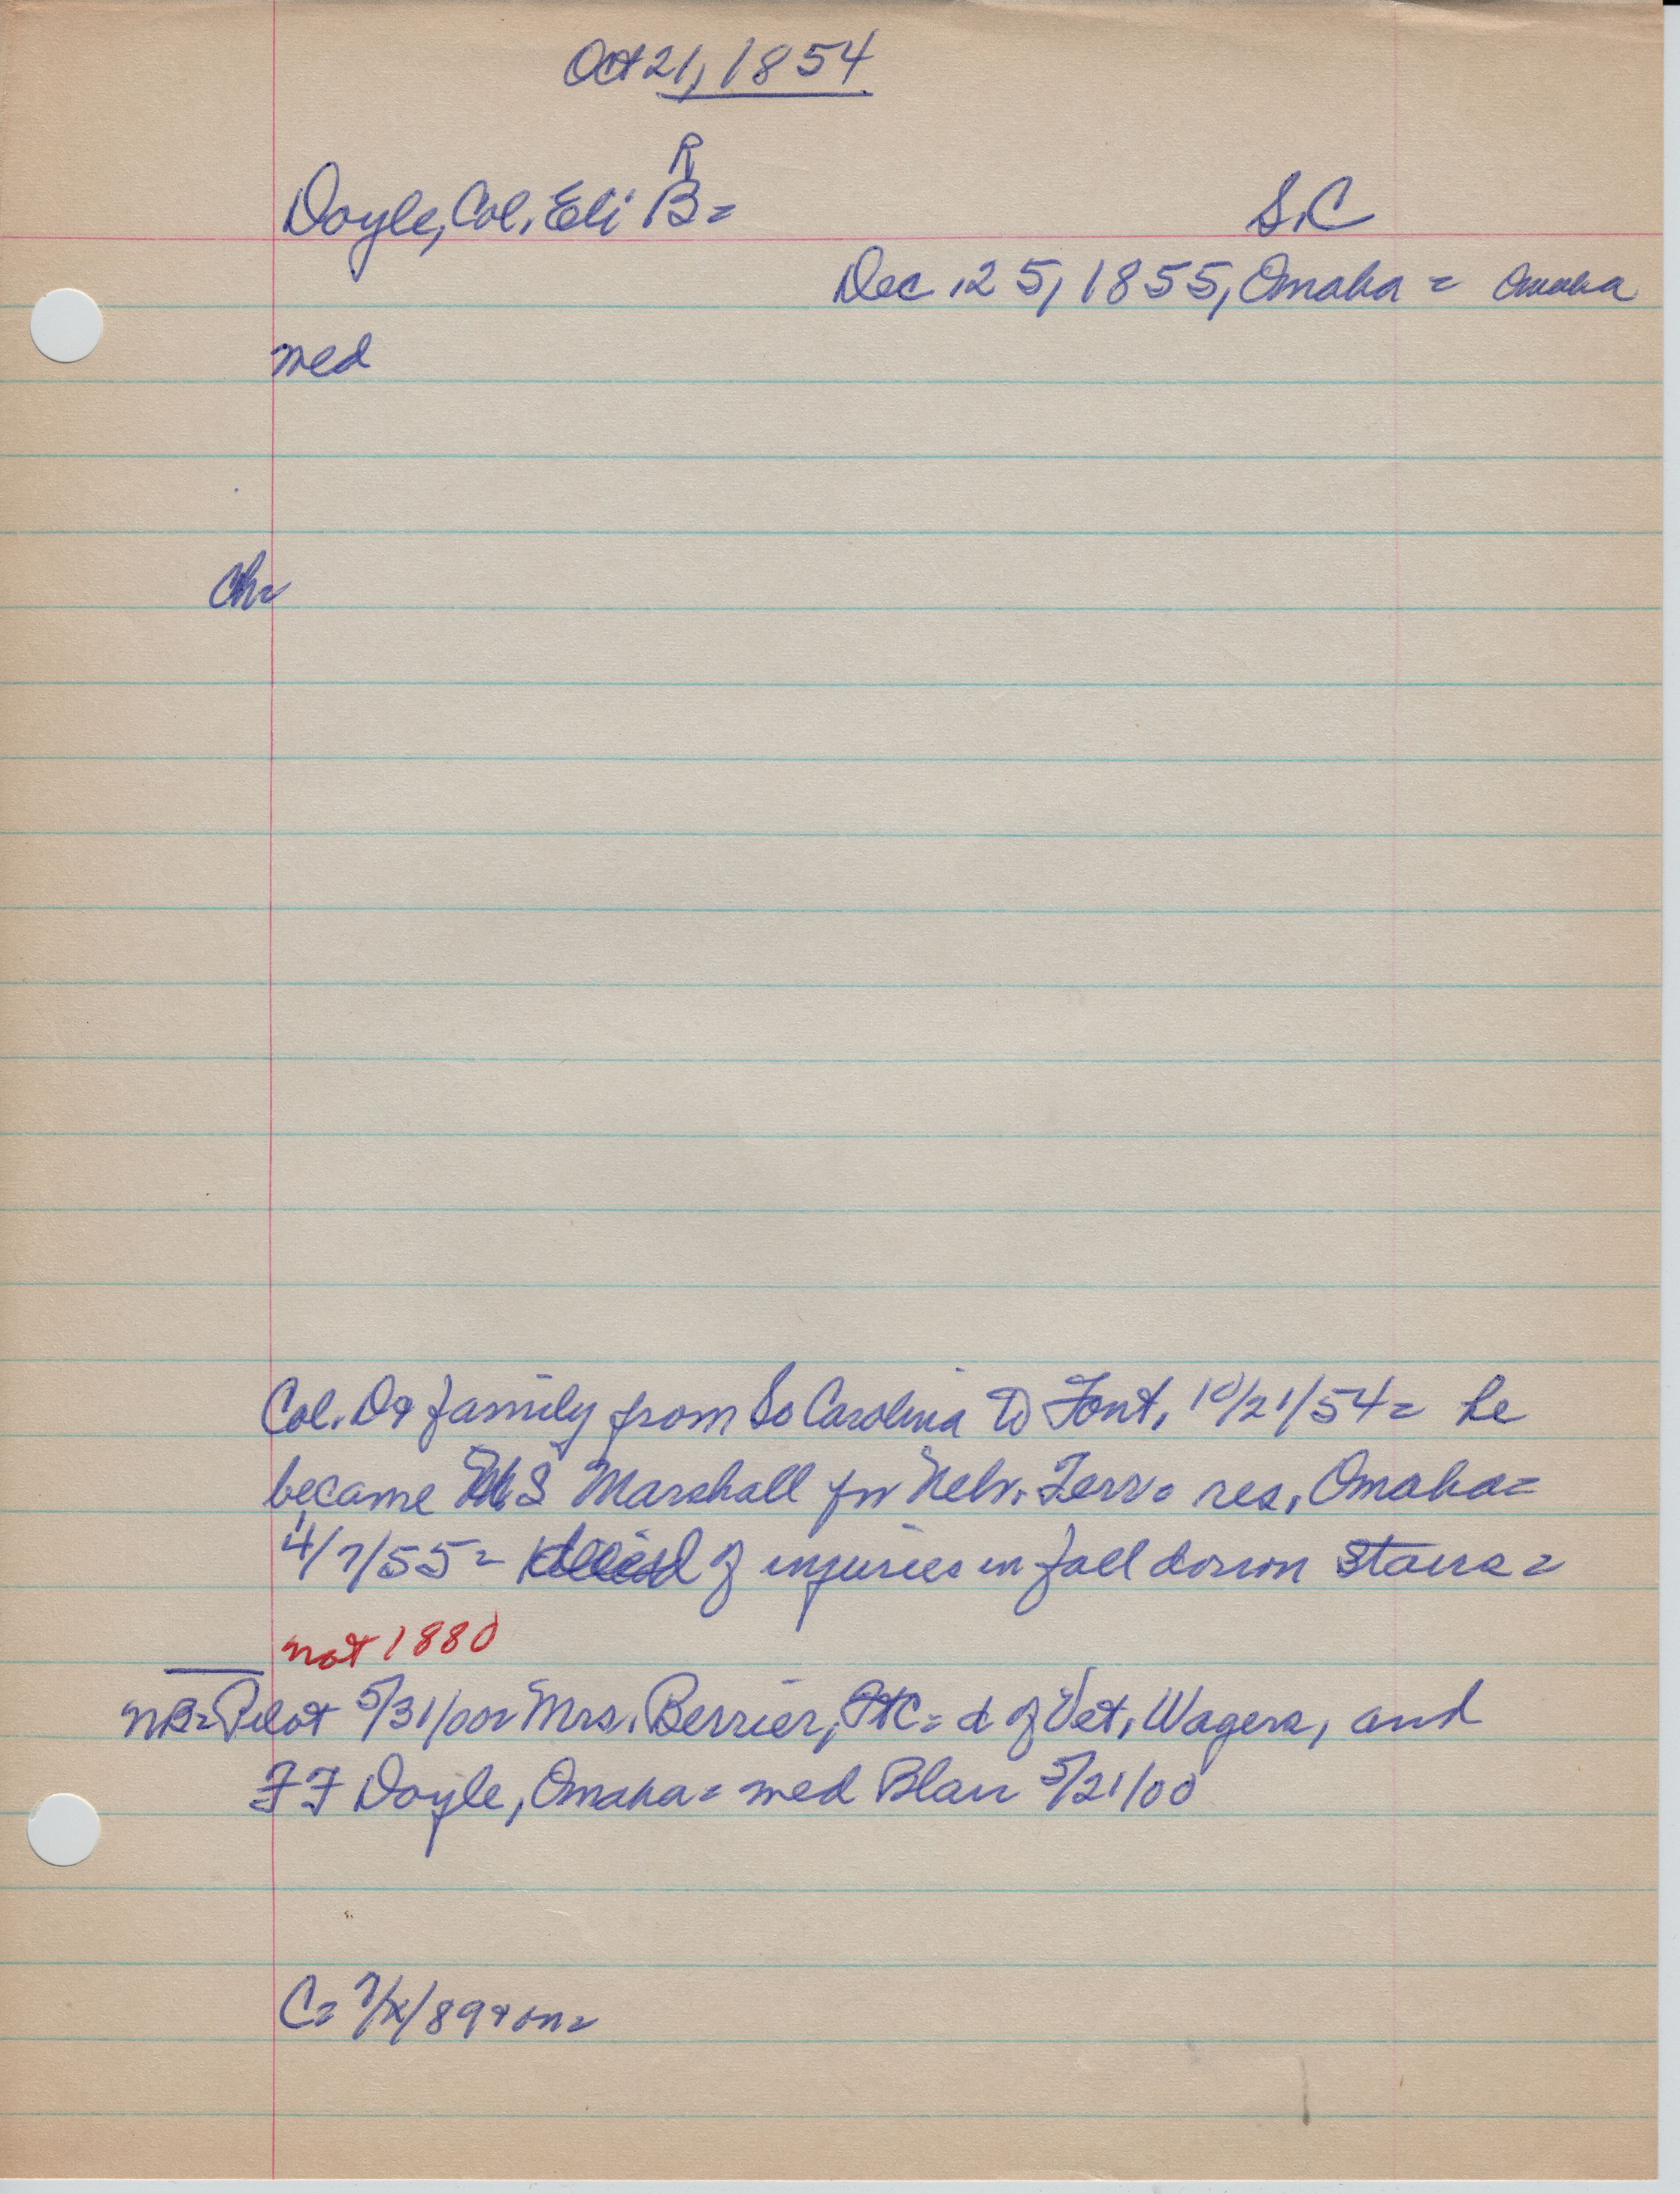 Oct 21, 1854
R
Doyle, Col. Eli B= S.C
Dec 25, 1855, Omaha = Omaha
med
Ch=
Col. D & family from So Carolina to Font, 10/21/54 = he
became US Marshall for Nebr. Terr = res, Omaha=
4/7/55 = of injuries in fall down stairs =
not 1880
NB= Pilot 5/31/00= Mrs. Berrier, = d of Vet, Wagers, and
FF Doyle, Omaha = med Blair 5/21/00
C= 89 & on=